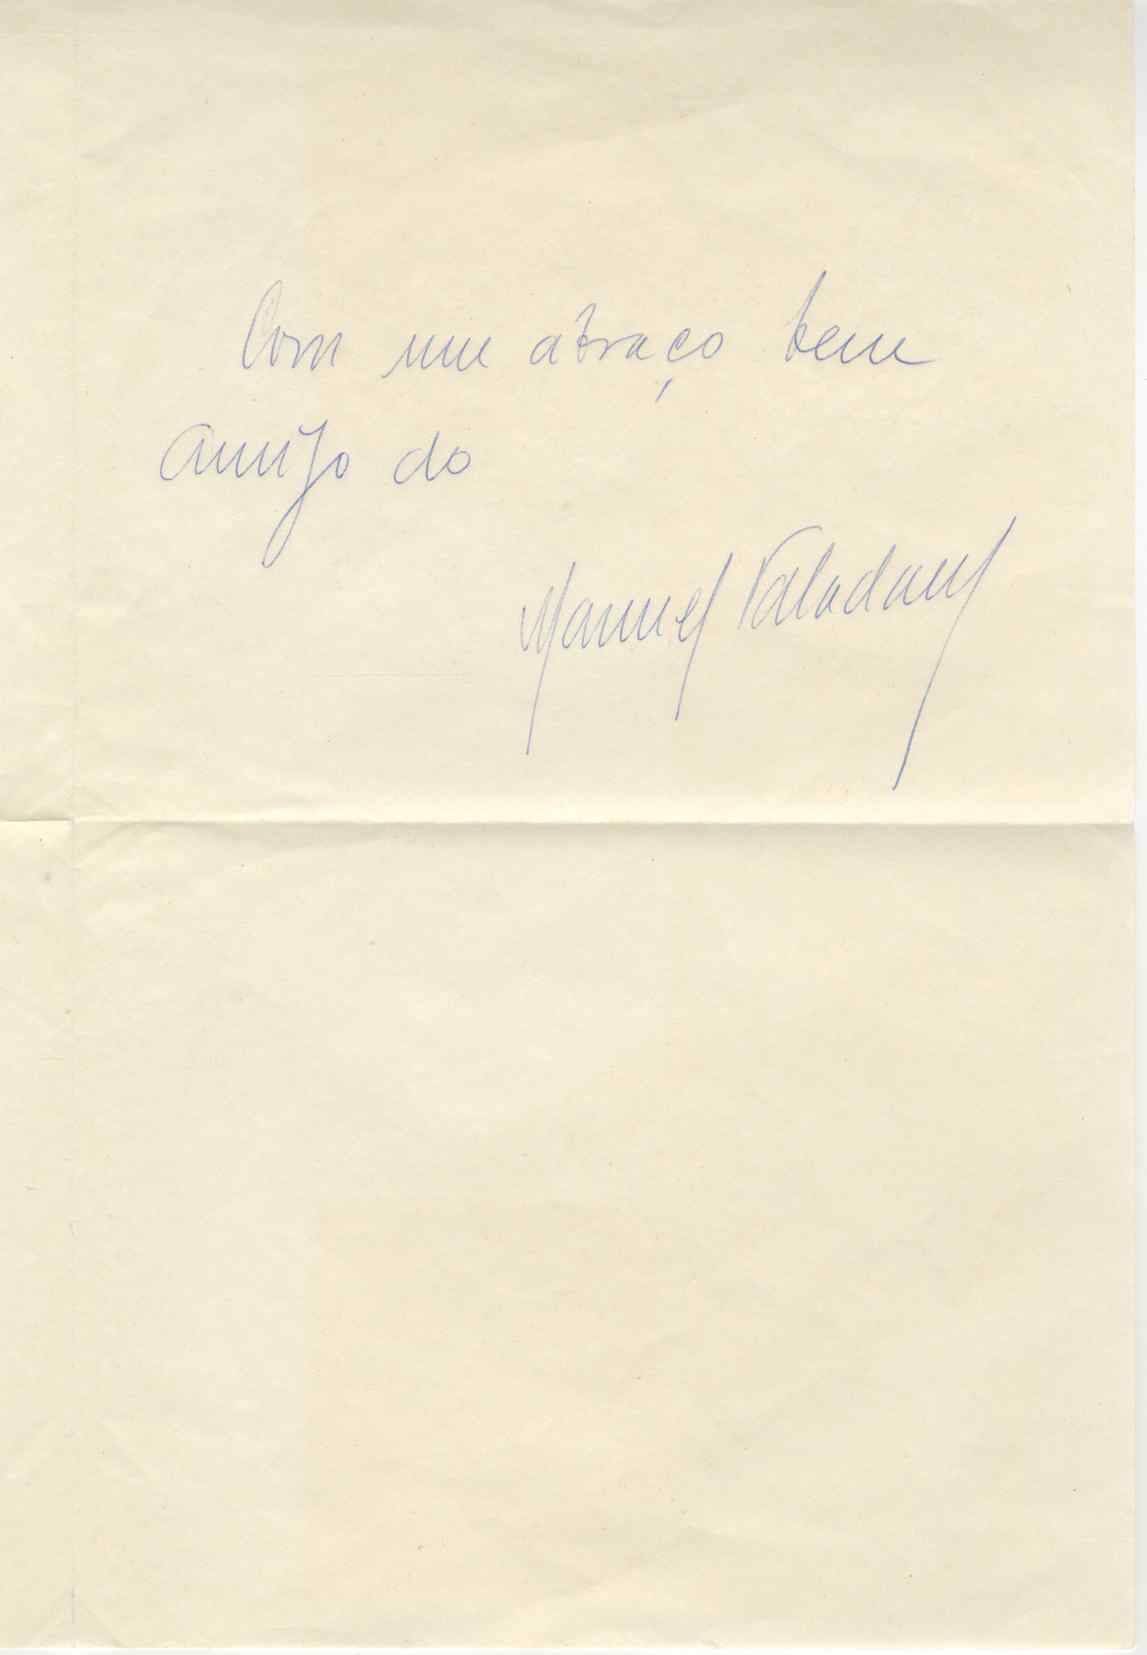 Com um abraço bem
amigo do
Manuel Valadares